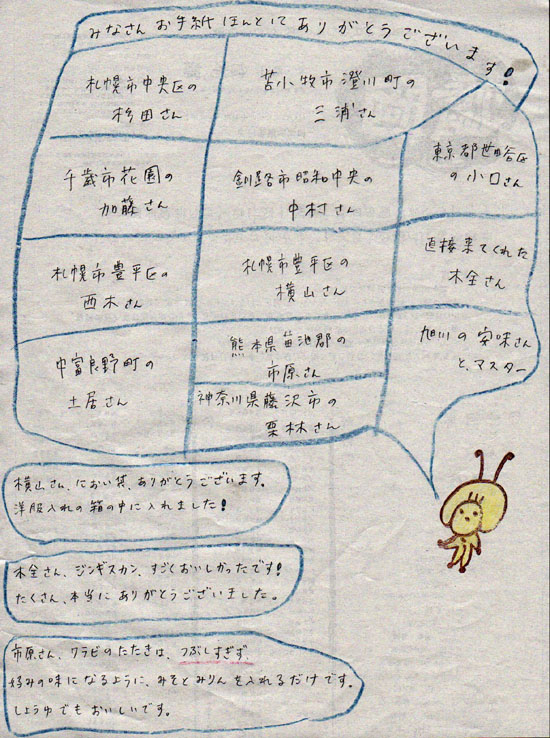 みなさんお手紙ほんとにありがとうございます!
札幌市中央区の
杉田さん
苫小牧市澄川町の
三浦さん
千歳市花園の
加藤さん
釧路市昭和中央の
中村さん
東京都世田谷区
の小口さん
札幌市豊平区の
西木さん
札幌市豊平区の
横山さん
直接来てくれた
木全さん
中富良野町の
土居さん
熊本県菊池郡の
市原さん
神奈川県藤沢市の
栗林さん
旭川の安味さん
と、マスター
横山さん、におい袋、ありがとうございます。
洋服入れの箱の中に入れました!
木全さん、ジンギスカン、すごくおいしかったです!
たくさん、本当にありがとうございました。
市原さん、ワラビのたたきは、つぶしすぎず、
好みの味になるように、みそとみりんを入れるだけです。
しょうゆでもおいしいです。